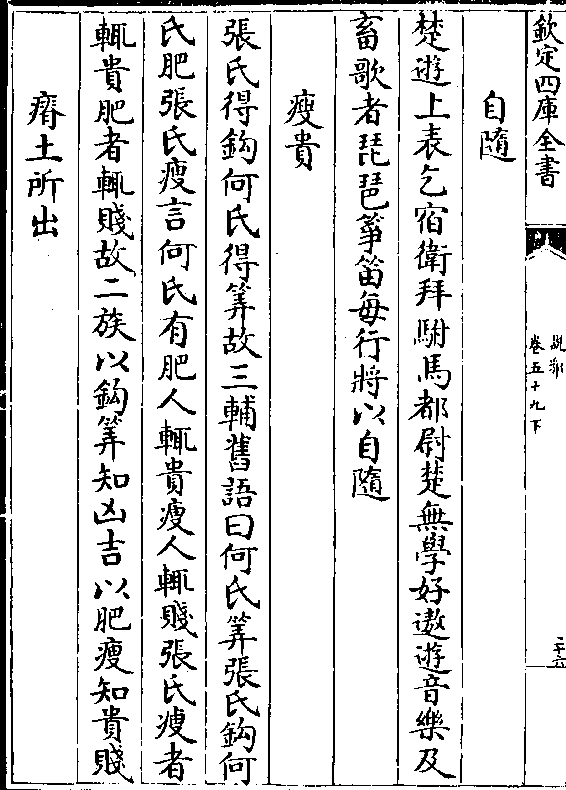 欽定四庫全書
說郛
卷五十九下
二十六
自隨
楚遊上表乞宿衛拜駙馬都尉楚無學好遨遊音樂及
畜歌者琵琶箏笛每行將以自隨
瘦貴
張氏得鈎何氏得筭故三輔舊語曰何氏筭張氏鈎何
氏肥張氏瘦言何氏有肥人輒貴瘦人輒賤張氏瘦者
輒貴肥者輒賤故二族以鈎筭知凶吉以肥瘦知貴賤
瘠土所出